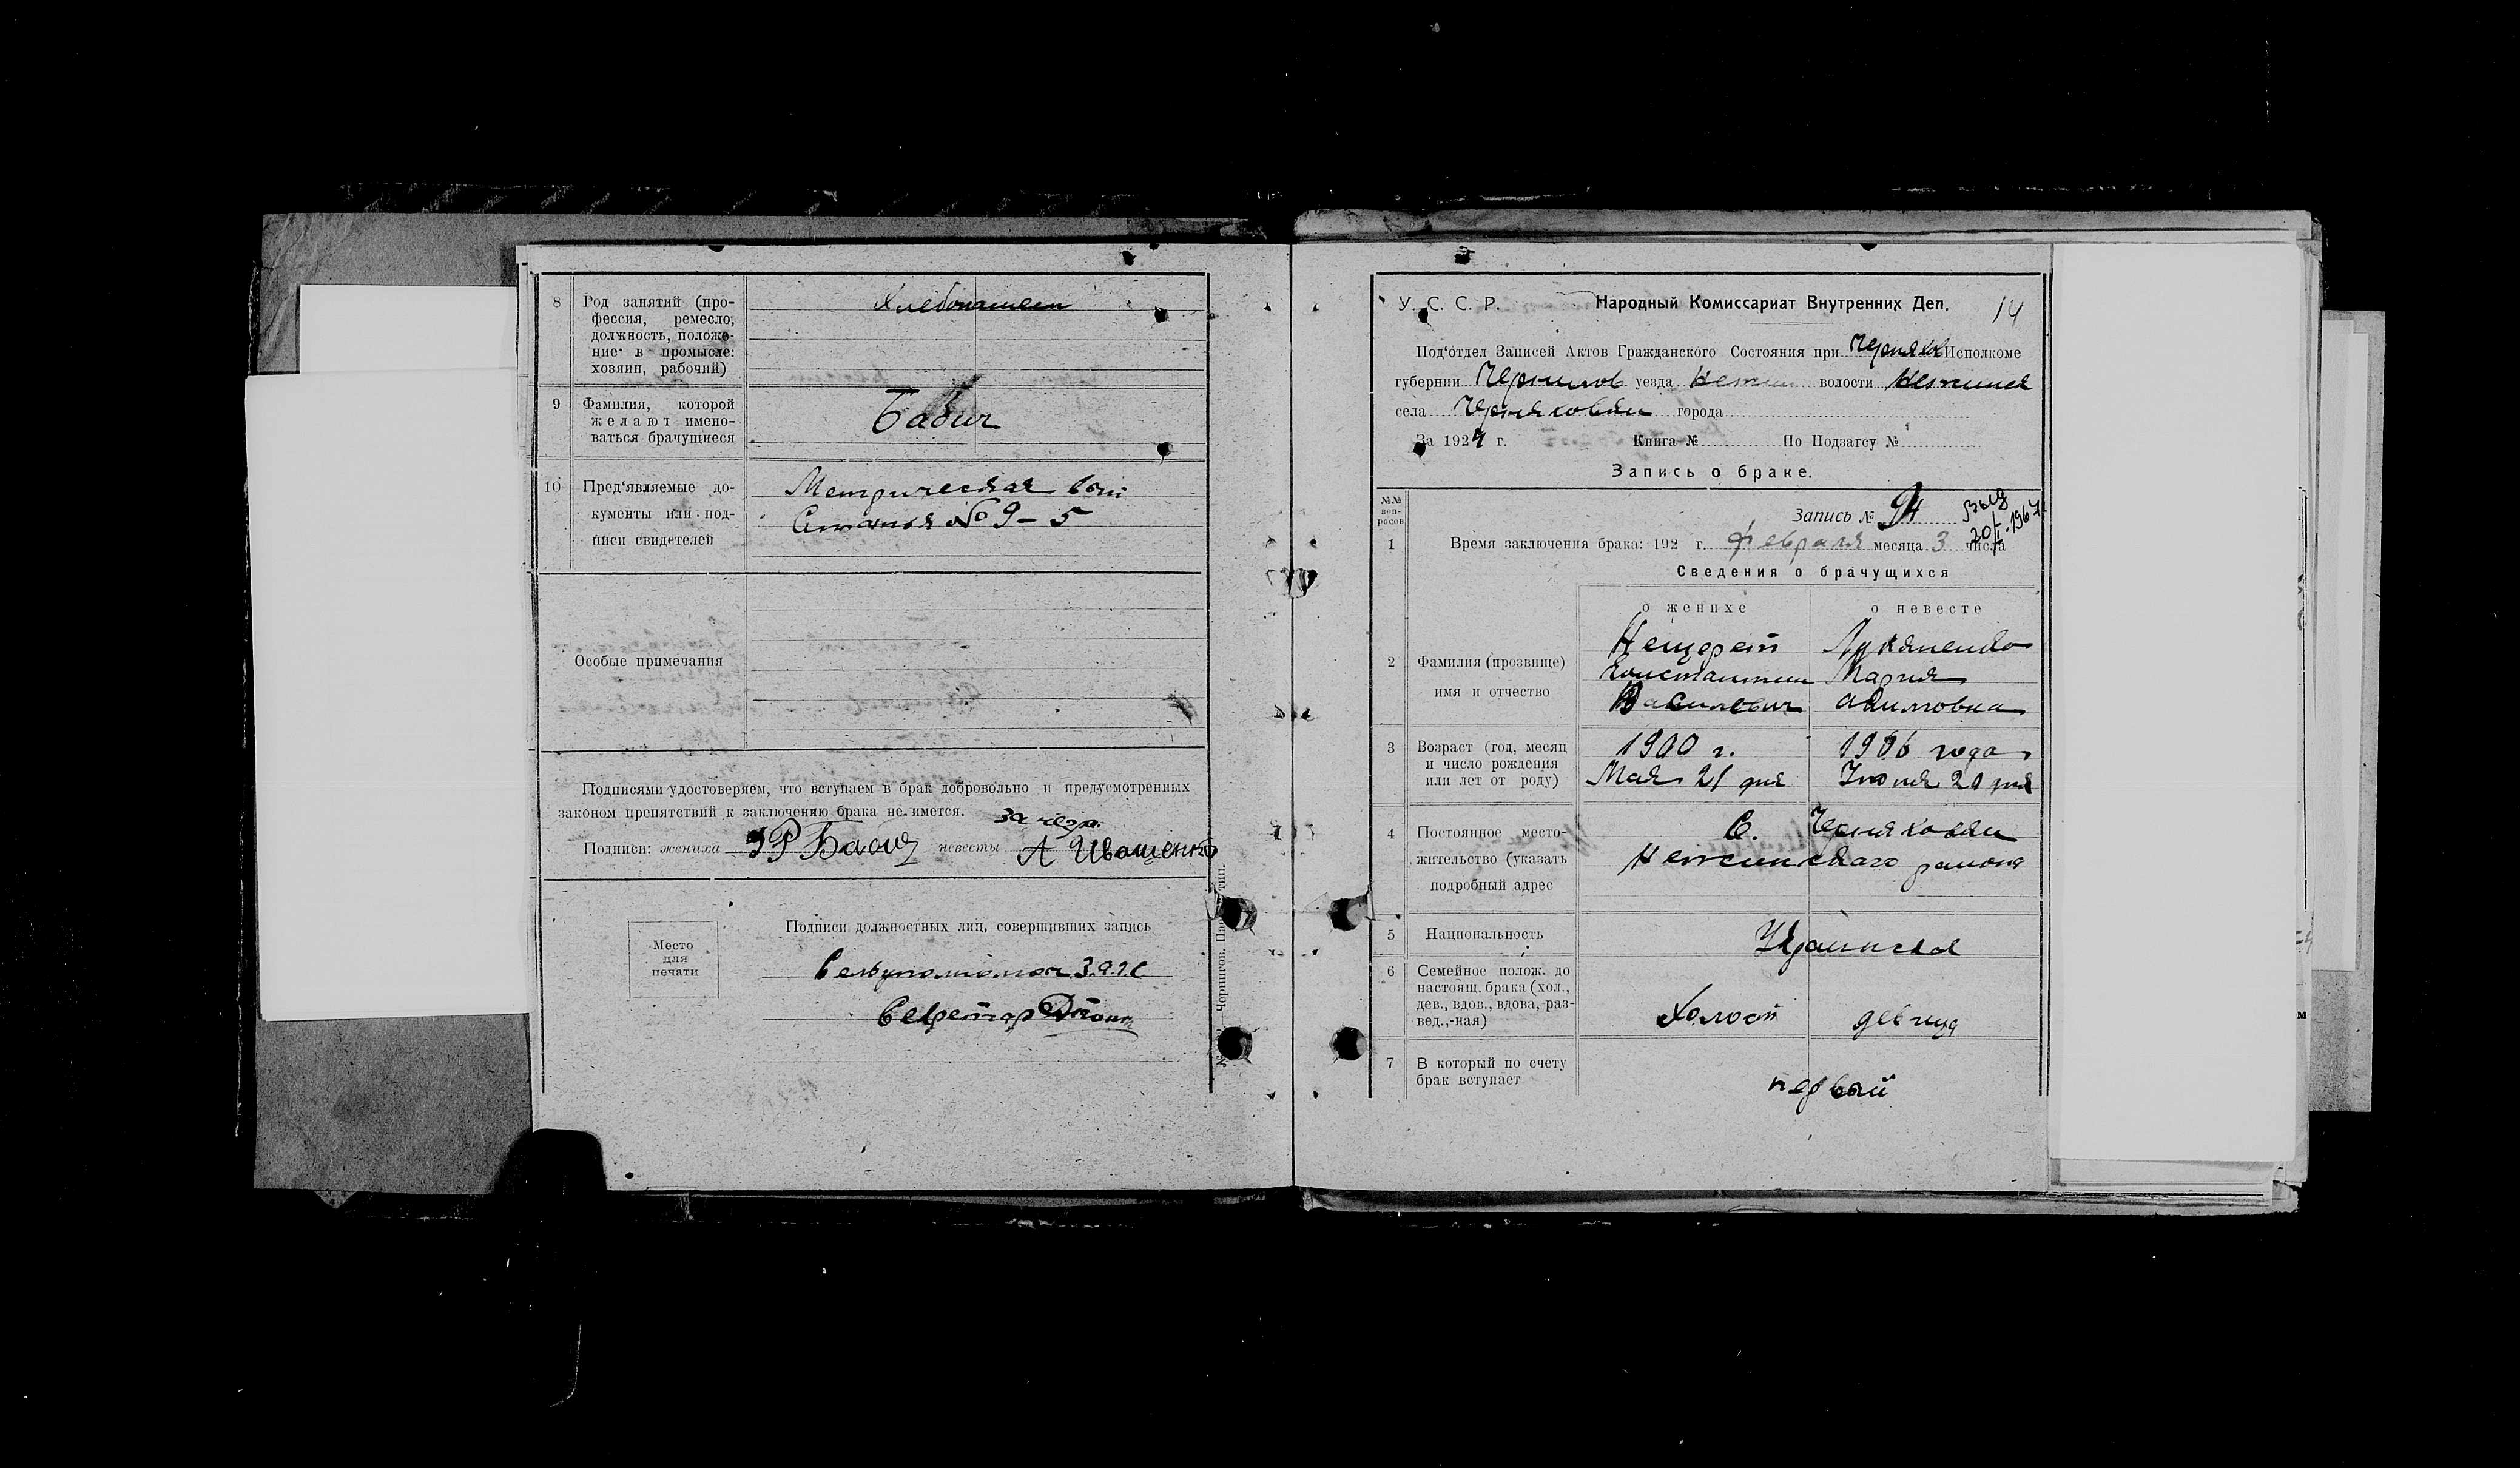 8 Род занятий (про-
фессия, ремесло,
должность, положе-
ние в промысле:
хозяин, рабочий)
Хлебопашец
9 Фамилия, которой
желают имено-
ваться брачущиеся
Бабич
10 Пред'являемые до-
кументы или под-
писи свидетелей
Метрическая
№ 9-5
Особые примечания
Подписями удостоверяем, что вступаем в брак добровольно и предусмотренных
законом препятствий к заключению брака не имется.
Подписи: жениха невесты А Иващенко
Место
для
печати
Подписи должностных лиц, совершивших запись
З.а.г.с
Секретар
У. С. С. Р. Народный Комиссариат Внутренних Дел. 14
Под'отдел Записей Актов Гражданского Состояния при Черняхов Исполкоме
губернии Чернигов уезда Нежин волости Нежинск
села Черняховки города
За 1924 г. Книга № По Подзагсу №
Запись о браке.
№№
воп-
росов
Запись №
Выд
20/I-1967
1 Время заключения брака: 192 г. февраля месяца 3 числа
Сведения о брачущихся
о женихе о невесте
2 Фамилия (прозвище)
имя и отчество
Нещерет
Константин
Василевич
Лукяненко
Мария
Акимовна
3 Возраст (год, месяц
и число рождения
или лет от роду)
1900 г.
Мая 21 дня
1906 года
Июня 20 дня
4 Постоянное место-
жительство (указать
подробный адрес
С. Черняховки
Нежинского района
5 Национальность
6 Семейное полож. до
настоящ. брака (хол.,
дев., вдов., вдова, раз-
вед.,-ная)
Холост девица
7 В который по счету
брак вступает
первый